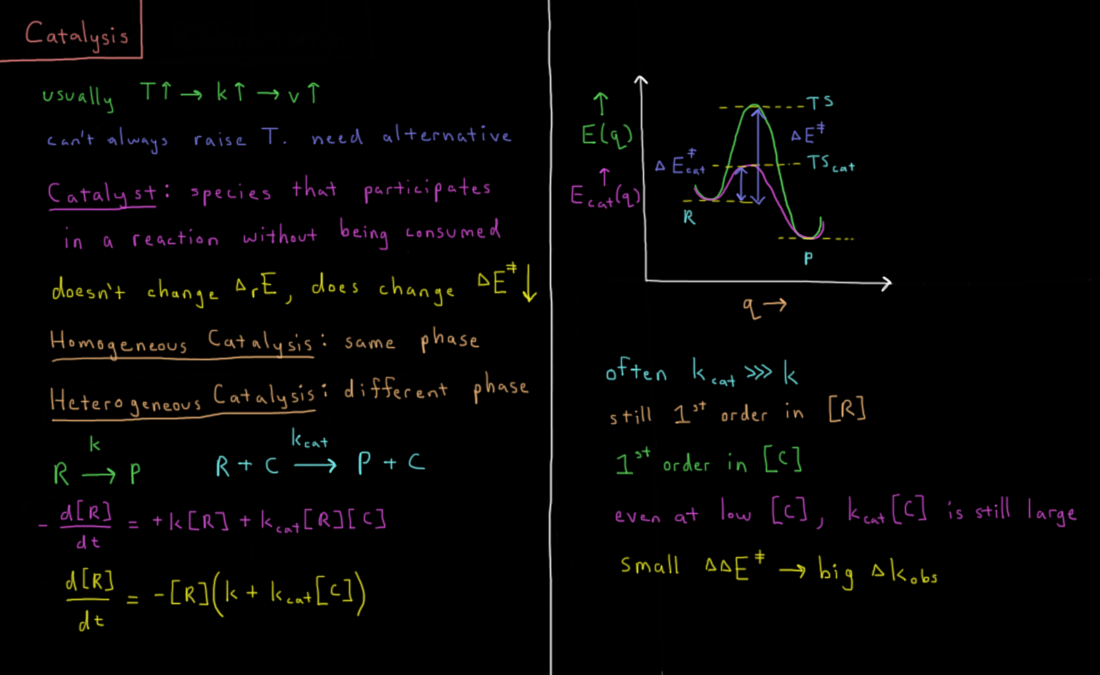 Catalysis
usually T↑ → k↑ → v↑
can't always raise T. need alternative
Catalyst: species that participates
in a reaction without being consumed
doesn't change ΔᵣE, does change ΔE‡↓
Homogeneous Catalysis: same phase
Heterogeneous Catalysis: different phase
R —k→ P
R + C —k_cat→ P + C
- d[R]/dt = +k[R] + k_cat[R][C]
d[R]/dt = -[R](k + k_cat[C])
↑
E(q)
↑
E_cat(q)
TS
ΔE‡
ΔE‡_cat
TS_cat
R
P
q →
often k_cat >>> k
still 1ˢᵗ order in [R]
1ˢᵗ order in [C]
even at low [C], k_cat[C] is still large
small ΔΔE‡ → big Δk_obs